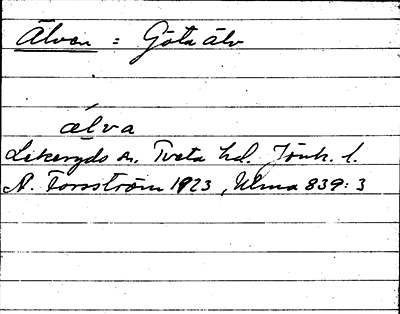 Älven = Göta älv
ælva
Lekeryds sn. Tveta hd. Jönk. l.
N. Torsström 1923, Ulma 839:3